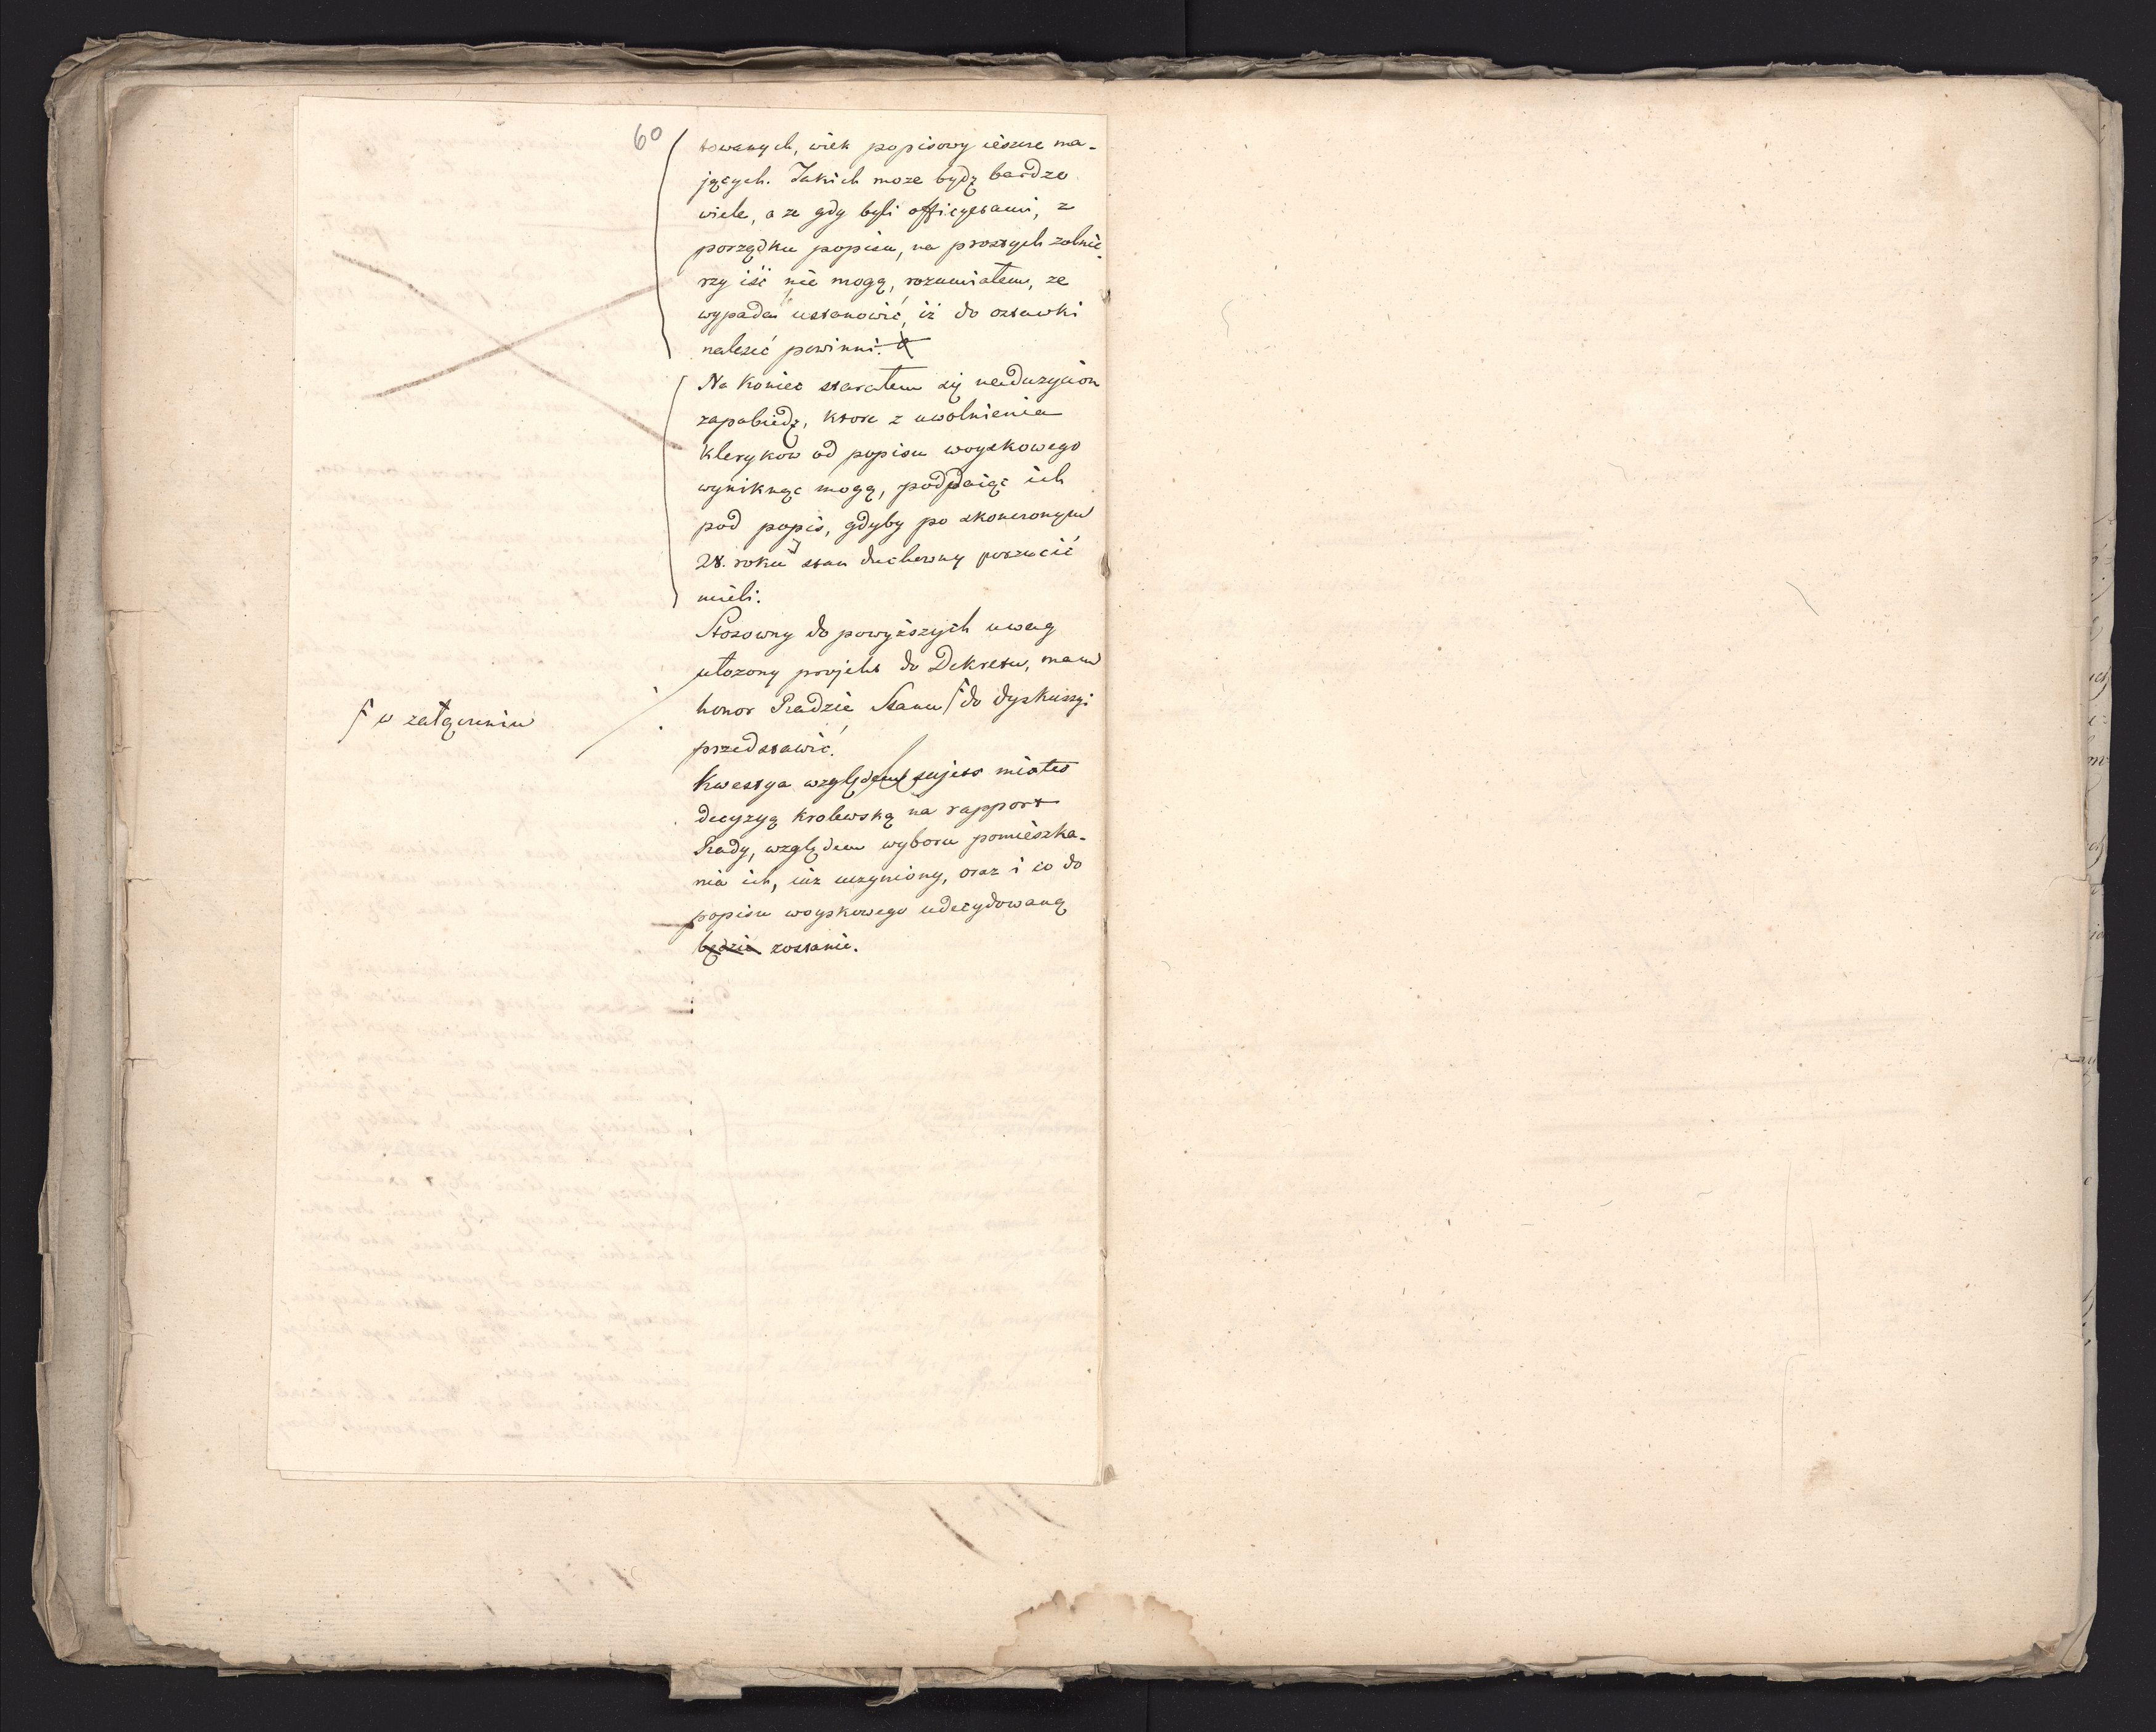 60
towanych, wiek popisowy ieszcze ma-
jących. Takich może będz bardzo
wiele, a że gdy byli officyerami, z
porządku popisu, na prostych żolnie-
rzy iść nie mogą, rozumiałem, że
wypada ustanowić, iż do ostawki
należeć powinni.
Na koniec starałem się nadużyciom
zapobiedz, które z uwolnienia
kleryków od popisu woyskowego
wyniknąć mogą, poddaiąc ich
pod popis, gdyby po skonczonym
28. roku stan duchowny porzucić
mieli.
Stosowny do powyższych uwag
ułożony projekt do Dekretu, mam
honor Radzie Stanu ſ do dyskussyi
ſ w załączeniu
przedstawić.
Kwestya względem sujets mixtes
decyzyą krolewską na rapport
Rady, względem wyboru pomieszka-
nia ich, iuż uczyniony, oraz i co do
popisu woyskowego udecydowaną
będzie zostanie.